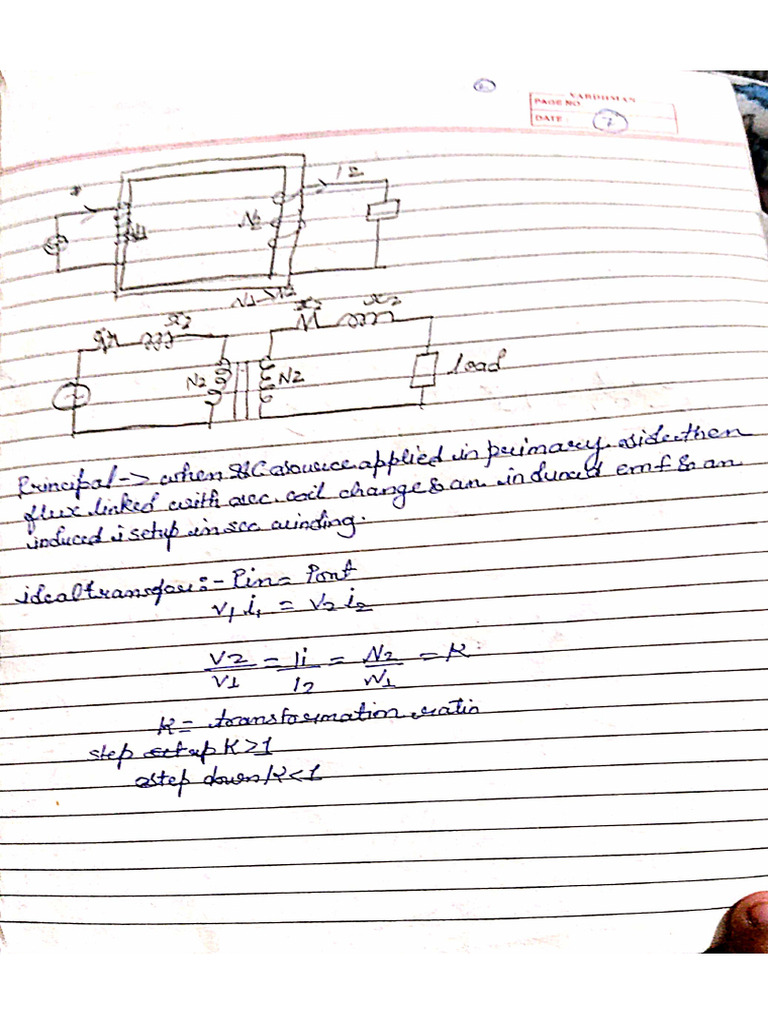 VARDHMAN
PAGE NO
DATE : 7
I2
N1
N2
N1 > N2
x2
x2
x2
N2
N2
load
Principal -> when AC source applied in primary side then
flux linked with sec. coil change & an induced emf & an
induced i setup in sec winding.
ideal transfor :- Pin = Pout
v1 i1 = v2 i2
V2/V1 = Ii/I2 = N2/N1 = K
K = transformation ratio
step up K>1
step down K<1